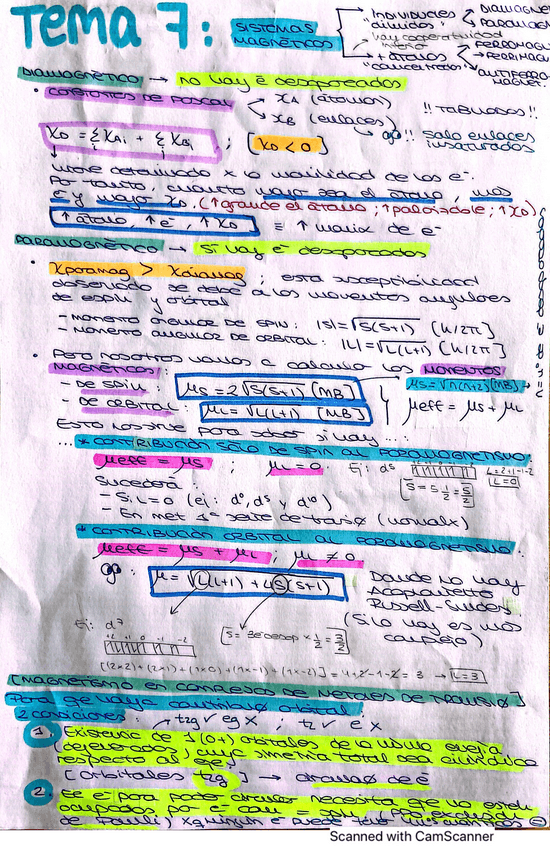 TEMA 7:
SISTEMAS MAGNÉTICOS
INDIVIDUALES "diluidos"
DIAMAGNE
PARAMAGN
Hay cooperatividad
+ átomos "concentrados"
FERROMAGN
FERRIMAG
ANTIFERRO MAGNET.
DIAMAGNÉTICO → no hay é desapareados
• CONSTANTES DE PASCAL
χA (átomos)
χB (enlaces)
!! TABULADOS!!
go!! Solo enlaces insaturados
χD = Σ χAi + Σ χBi ; [χD < 0]
i i
viene determinado x la movilidad de los e-.
Por tanto, cuanto mayor sea el átomo, más
e- y mayor χD. (↑grande el átomo; ↑polarizable; ↑χD)
↑ átomo, ↑ e-, ↑ χD ≡ ↑ movilx de e-
PARAMAGNÉTICO → Sí hay é desapareados
• χparamag > χdiamag ; esta susceptibilidad
observada se debe a los momentos angulares
de espín y orbital
- MOMENTO ANGULAR DE SPIN: |S| = √S(S+1) [h/2π]
- MOMENTO ANGULAR DE ORBITAL: |L| = √L(L+1) [h/2π]
• Pero nosotros vamos a calcular los MOMENTOS
MAGNÉTICOS
- DE SPIN: μS = 2√S(S+1) [MB]
μS = √n(n+2) [MB]
- DE ORBITAL: μL = √L(L+1) [MB]
μeff = μS + μL
n = nº de é desapareados
Esto nos sirve para saber si hay...
... * CONTRIBUCIÓN SOLO DE SPIN AL PARAMAGNETISMO:
μeff = μS ; μL = 0
Ej: d5
L=2+1-1-2
L=0
S = 5·1/2 = 5/2
Sucederá:
- Si L=0 (ej: d0, d5 y d10)
- En met 1ª serie de transiø (normalx)
* CONTRIBUCIÓN ORBITAL AL PARAMAGNETISMO:
μeff = μS + μL ; μL ≠ 0
go: μ = √L(L+1) + 4S(S+1)
Donde no hay
Acoplamiento
Russell-Sunders
(Si lo hay es más
complejo)
Ej: d7
+2 +1 0 -1 -2
S = 3e- desap × 1/2 = 3/2
[(2×2)+(2×1)+(1×0)+(1×-1)+(1×-2)] = 4+2-1-2 = 3 → L=3
[MAGNETISMO EN COMPLEJOS DE METALES DE TRANSIø]
Para qe haya contribuø orbital
2 condiciones: → t2g ✓ eg X ; t2 ✓ e X
1. Existencia de 1 (o+) orbitales de la misma energía
(degenerados), cuya simetría total sea cilíndrica
respecto al eje
[orbitales t2g] → circulaø de é
2. Ee é para poder circular necesita qe no estén
ocupados por é con = spin (Ppio exclusión
de Pauli) xq ningún é puede tener
Scanned with CamScanner